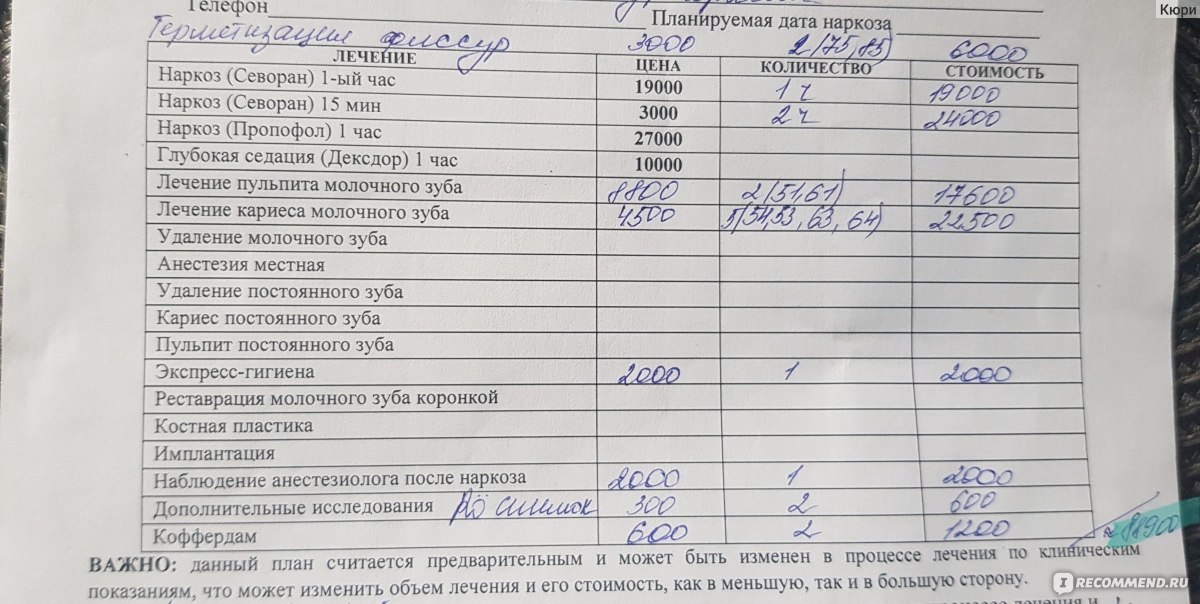 Кюри
Телефон
Планируемая дата наркоза
Герметизация фиссур 3000 2(75,85) 6000
ЛЕЧЕНИЕ ЦЕНА КОЛИЧЕСТВО СТОИМОСТЬ
Наркоз (Севоран) 1-ый час 19000 1 ч 19000
Наркоз (Севоран) 15 мин 3000 2 ч 24000
Наркоз (Пропофол) 1 час 27000
Глубокая седация (Дексдор) 1 час 10000
Лечение пульпита молочного зуба 8800 2(51,61) 17600
Лечение кариеса молочного зуба 4500 5(54,53, 63, 64) 22500
Удаление молочного зуба
Анестезия местная
Удаление постоянного зуба
Кариес постоянного зуба
Пульпит постоянного зуба
Экспресс-гигиена 2000 1 2000
Реставрация молочного зуба коронкой
Костная пластика
Имплантация
Наблюдение анестезиолога после наркоза 2000 1 2000
Дополнительные исследования снимок 300 2 600
Коффердам 600 2 1200
≈ 88900
ВАЖНО: данный план считается предварительным и может быть изменен в процессе лечения по клиническим
показаниям, что может изменить объем лечения и его стоимость, как в меньшую, так и в большую сторону.
IRECOMMEND.RU